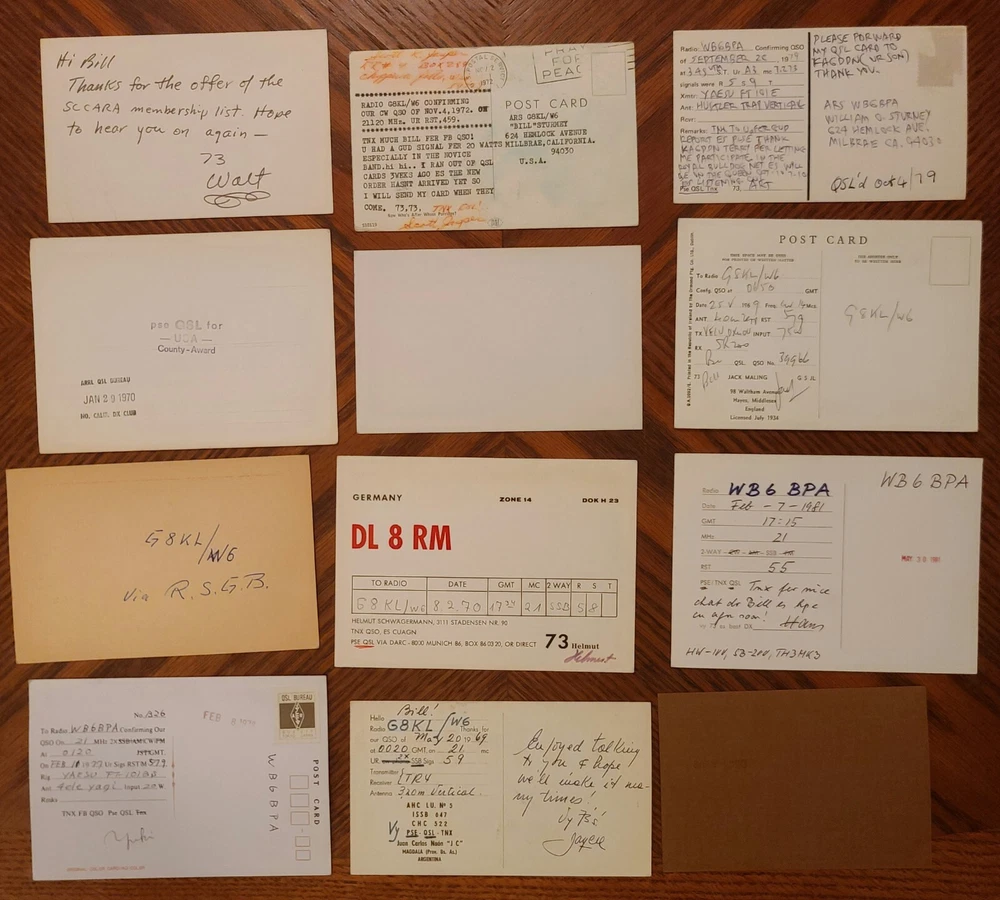 Hi Bill
Thanks for the offer of the
SCCARA membership list. Hope
to hear you on again —
73
Walt
PRAY
FOR
PEAC
1972
POST CARD
RADIO G8KL/W6 CONFIRMING
OUR CW QSO OF NOV.4,1972. ON
21120 MHz. UR RST.459.
TNX MUCH BILL FER FB QSO1
U HAD A GUD SIGNAL FER 20 WATTS
ESPECIALLY IN THE NOVICE
BAND.hi hi.. I RAN OUT OF QSL
CARDS 3WEKS AGO ES THE NEW
ORDER HASNT ARRIVED YET SO
I WILL SEND MY CARD WHEN THEY
COME. 73,73.
ARS G8KL/W6
"BILL"STURMEY
624 HEMLOCK AVENUE
MILLBRAE,CALIFORNIA.
94030
U.S.A.
Radio: WB6BPA Confirming QSO
of SEPTEMBER 26, 19
signals were R 5 S 9 T
Xmtr: YAESU FT 101E
Ant: HUSTLER TRAP VERTICAL
Rcvr:
Remarks:
Pse QSL Tnx 73, ART
PLEASE FORWARD
MY QSL CARD TO
KAGDON (UR SON)
THANK YOU.
ARS WB6BPA
WILLIAM D. STURNEY
624 HEMLOCK AVE.
MILBRAE CA. 94030
QSL'd Oct 4/79
pse QSL for
— USA —
County-Award
ARRL QSL BUREAU
JAN 29 1970
NO. CALIF. DX CLUB
POST CARD
To Radio G8KL/W6
Confg. QSO at GMT
Date 25 V 1969 Freq.
ANT. RST 579
TX INPUT
RX
QSL. QSO No.
73 JACK MALING G5JL
98 Waltham Avenue
Hayes, Middlesex
England
Licensed July 1934
G8KL/W6
G8KL/W6
via R.S.G.B.
GERMANY ZONE 14 DOK H 23
DL 8 RM
TO RADIO DATE GMT MC 2 WAY R S T
G8KL/W6 8.2.70 17 34 21 SSB 5 8
HELMUT SCHWÄGERMANN, 3111 STADENSEN NR. 90
TNX QSO, ES CUAGN
PSE QSL VIA DARC - 8000 MUNICH 86, BOX 86 03 20, OR DIRECT 73 Helmut
Helmut
Radio WB6 BPA
Date Feb - 7 - 1981
GMT 17:15
MHz 21
2-WAY SSB
RST 55
PSE/TNX QSL Tnx fer nice
chat dr Bill es hpe
cu agn soon!
vy 73 es best DX Hans
HW-100, SB-200, TH3MK3
WB6 BPA
No. 326
FEB
QSL BUREAU
To Radio WB6BPA Confirming Our
QSO On 21 MHz 2×SSB/AM/CW/FM
At 0120 GMT
On FEB 10 1977 Ur Sigs RST/M 579
Rig YAESU FT-101BD
Ant 4ele yagi Input 20 W
Remks
TNX FB QSO Pse QSL Tnx
POST CARD
WB6BPA
Bill!
Hello
Radio G8KL/W6 Thanks for
our QSO of May 20 1969
at 0020 GMT on 21 mc
UR 2X SSB Sigs 59
Transmitter
Receiver LTRV
Antenna 3/20m Vertical.
AHC LU. Nº 5
ISSB 647
CHC 522
Vy PSE-QSL-TNX
Juan Carlos Naón "J C"
MAGDALA (Prov. Bs. As.)
ARGENTINA
Enjoyed talking
to you & hope
we'll make it ma-
ny times!
Vy 73s
Jaycee